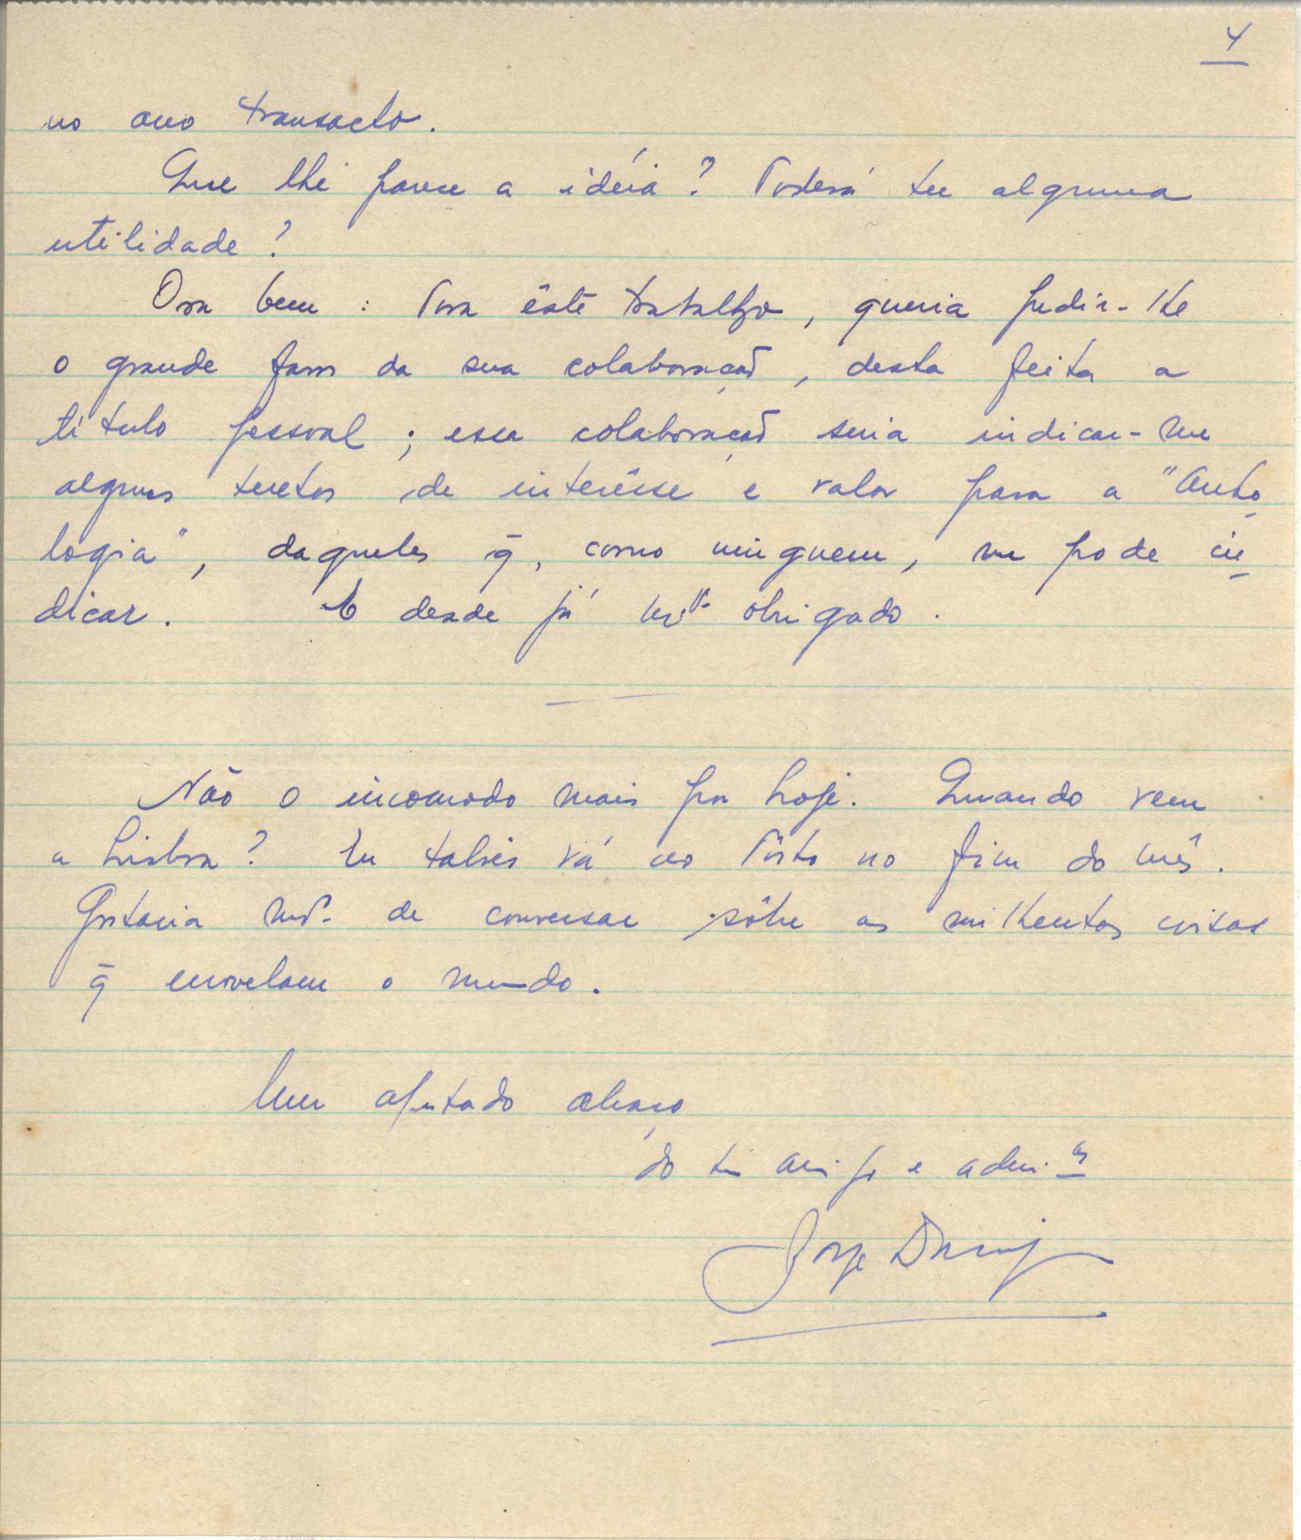 4
no ano transacto.
Que lhe parece a idéia? Poderá ter alguma
utilidade?
Ora bem: Para êste trabalho, queria pedir-lhe
o grande favor da sua colaboração, desta feita a
título pessoal; essa colaboração seria indicar-me
alguns textos de interêsse e valor para a "Anto
logia", daqueles q̄, como ninguem, me pode in
dicar. E desde já mto. obrigado.
Não o incomodo mais por hoje. Quando vem
a Lisboa? Eu talvez vá ao Pôrto no fim do mês.
Gostaria mto. de conversar sôbre as milhentas coisas
q̄ enovelam o mundo.
Um apertado abraço
do seu amigo e admi.or
Jorge